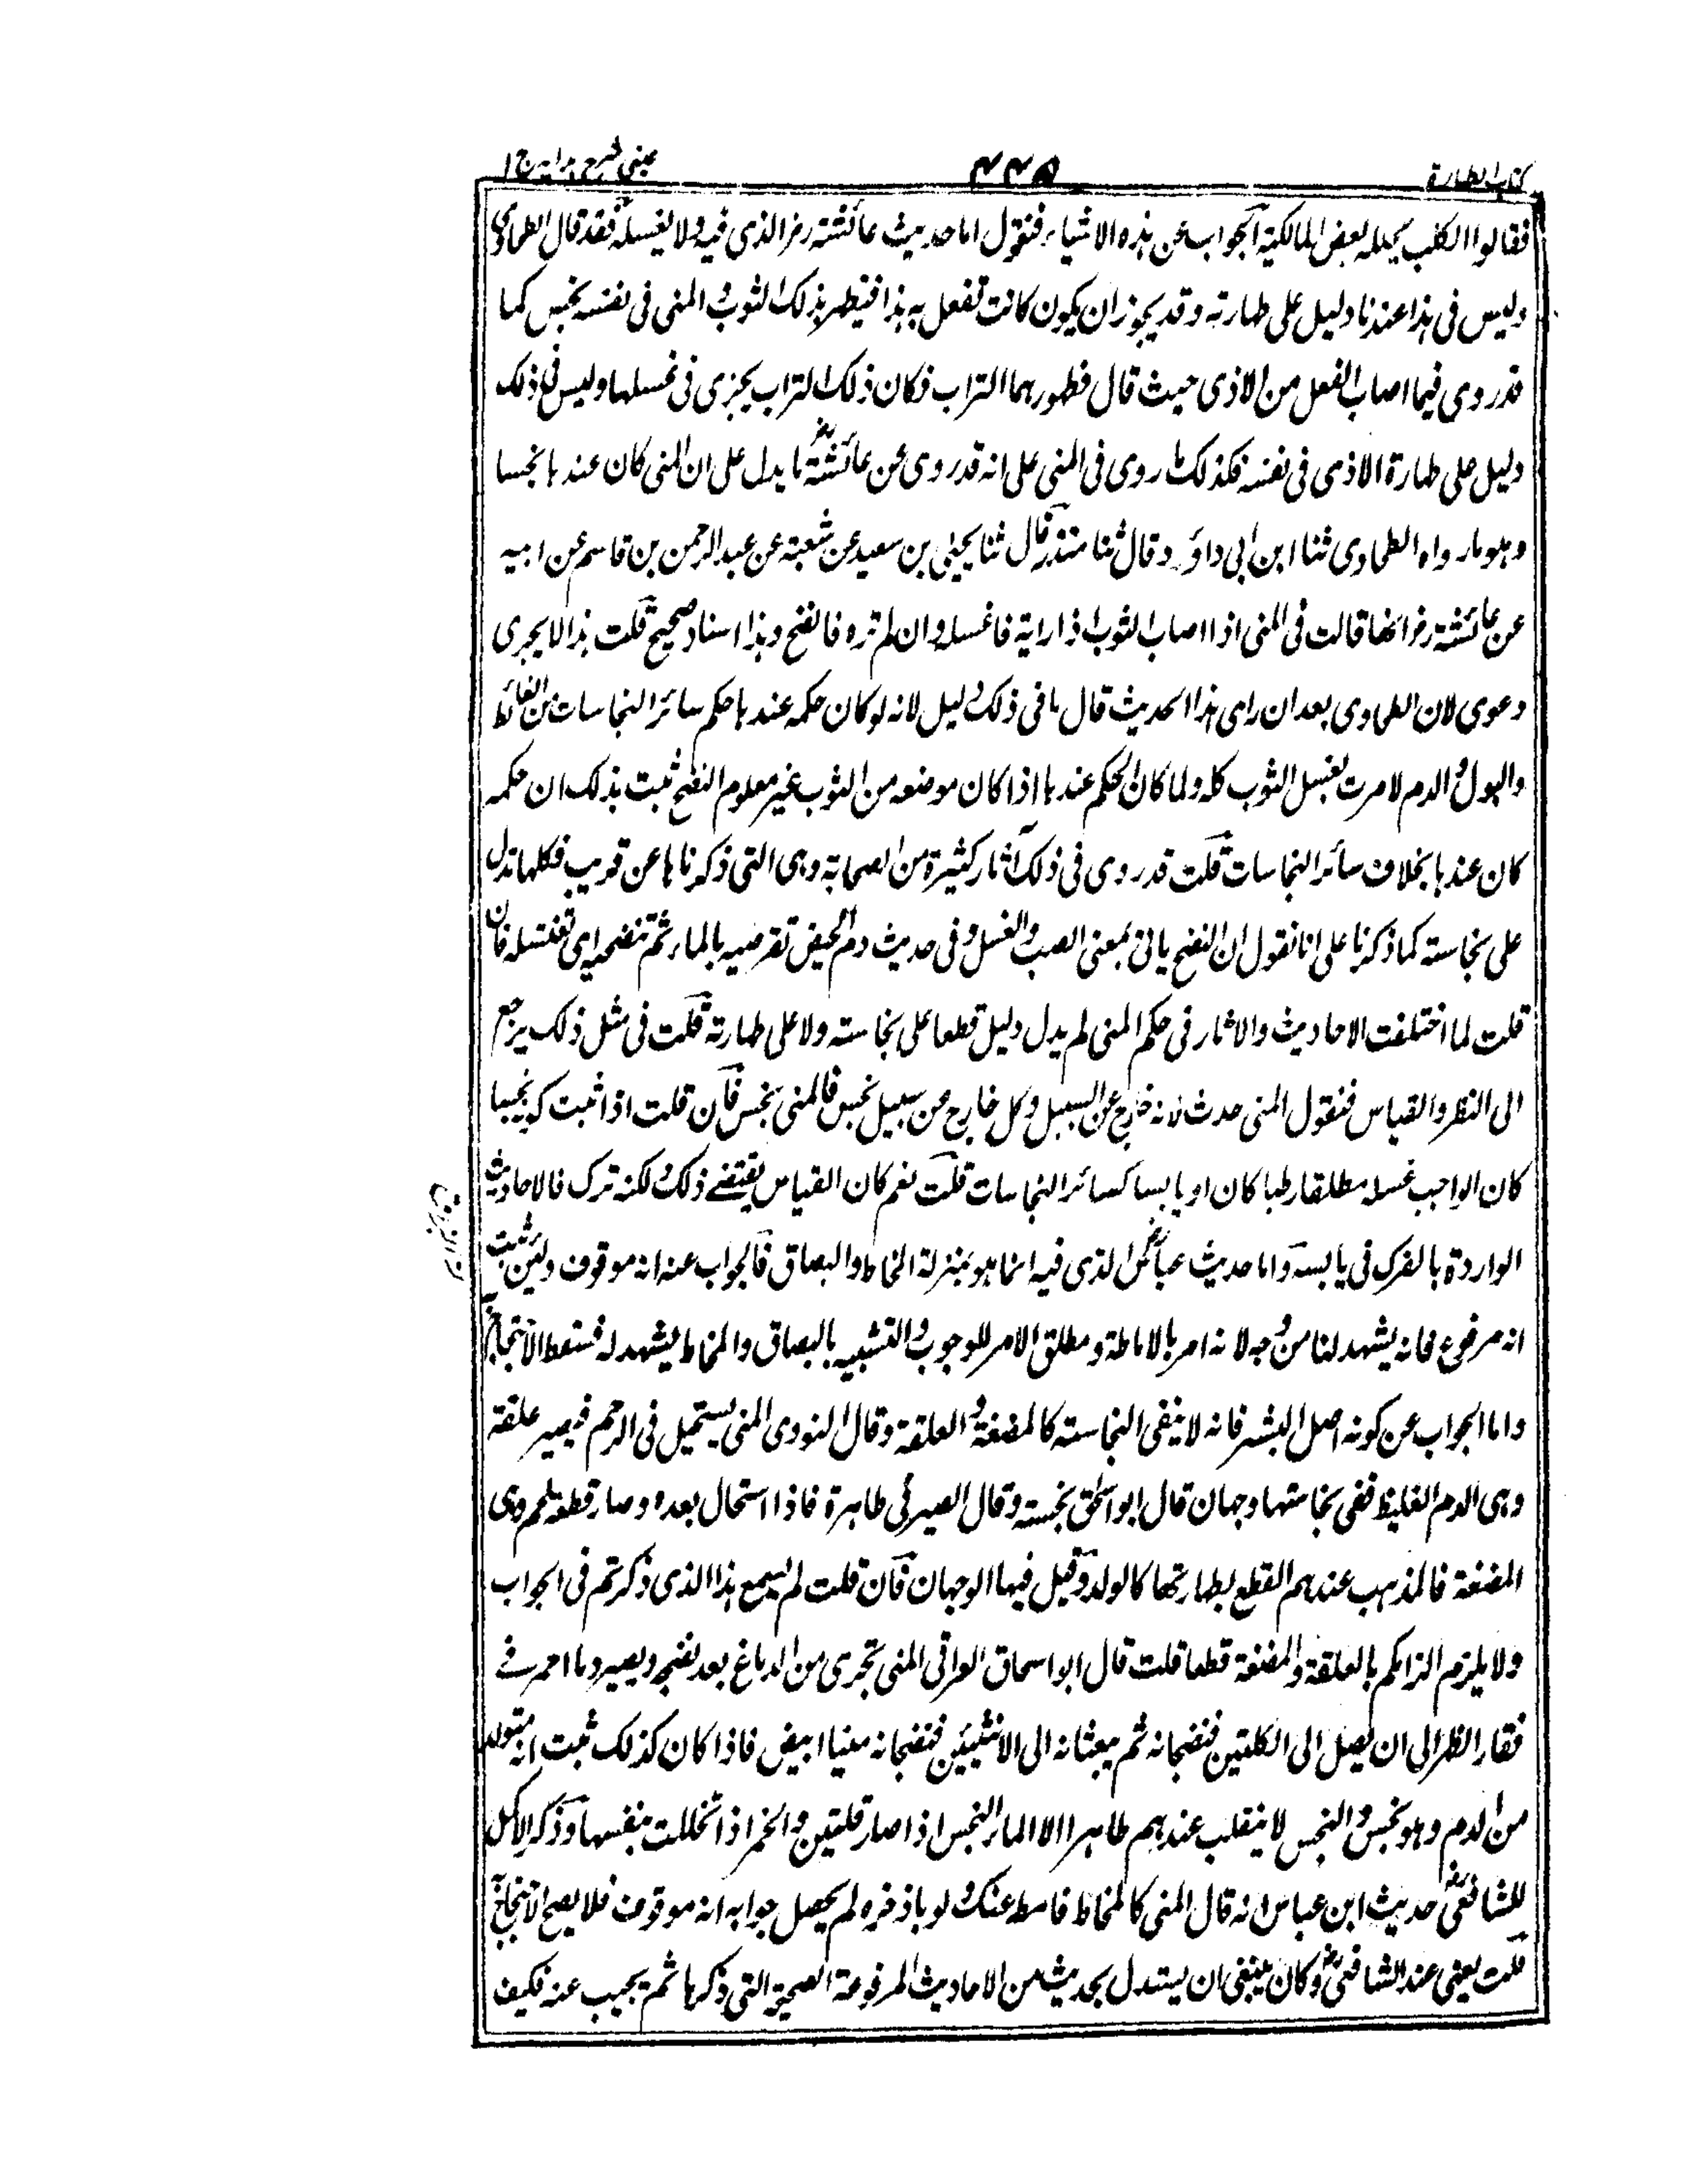 كتاب الطهارة
٤٤٥
عيني شرح هداية ج ١
فقالوا الكلب يحله بعض المالكية الجواب عن هذه الاشياء فنقول اما حديث عائشة رض الذي فيه ولا يغسله فقد قال الطحاوي
وليس في هذا عندنا دليل على طهارته وقد يجوز ان يكون كانت تفعل به هذا فيطهر بذلك الثوب والمني في نفسه نجس كما
قد روي فيما اصاب النعل من الاذى حيث قال فطهورهما التراب فكان ذلك التراب يجزي في غسلها وليس في ذلك
دليل على طهارة الاذى في نفسه فكذلك ما روي في المني على انه قد روي عن عائشة رض ما يدل على ان المني كان عندها نجسا
وهو ما رواه الطحاوي ثنا ابن ابي داؤد وقال ثنا مسدد قال ثنا يحيى بن سعيد عن شعبة عن عبد الرحمن بن قاسم عن ابيه
عن عائشة رض انها قالت في المني اذا اصاب الثوب اذا رايته فاغسله وان لم تره فانضح وهذا اسناد صحيح قلت هذا لا يجري
دعوى لان الطحاوي بعد ان راى هذا الحديث قال ما في ذلك دليل لانه لو كان حكمه عندها حكم سائر النجاسات من الغائط
والبول والدم لامرت بغسل الثوب كله ولما كان الحكم عندها اذا كان موضعه من الثوب غير معلوم النضح ثبت بذلك ان حكمه
كان عندها بخلاف سائر النجاسات قلت قد روي في ذلك آثار كثيرة من الصحابة وهي التي ذكرناها عن قريب فكلها تدل
على نجاسته كما ذكرنا على انا نقول ان النضح ياتي بمعنى الصب والغسل وفي حديث دم الحيض تقرصيه بالماء ثم تنضحيه اي تغتسله فان
قلت لما اختلفت الاحاديث والاثار في حكم المني لم يدل دليل قطعا على نجاسته ولا على طهارته قلت في مثل ذلك يرجع
الى النظر والقياس فنقول المني حدث لانه خارج عن السبيل وكل خارج من سبيل نجس فالمني نجس فان قلت اذا ثبت كونه نجسا
كان الواجب غسله مطلقا رطبا كان او يابسا كسائر النجاسات قلت نعم كان القياس يقتضي ذلك ولكنه ترك فالاحاديث
الواردة بالفرك في يابسه واما حديث عباس الذي فيه انما هو بمنزلة المخاط والبصاق فالجواب عنه انه موقوف ولئن ثبت
انه مرفوع فانه يشهد لنا من وجه لانه امر بالاماطة ومطلق الامر للوجوب والتشبيه بالبصاق والمخاط يشهد له فسقط الاحتجاج
واما الجواب عن كونه اصل البشر فانه لا ينفي النجاسته كالمضغة والعلقة وقال النووي المني يستحيل في الرحم فيصير علقة
وهي الدم الغليظ ففي نجاستها وجهان قال ابو اسحق نجسته وقال الصيرفي طاهرة فاذا استحال بعده وصار قطعة لحم وهي
المضغة فالمذهب عندهم القطع بطهارتها كالولد وقيل فيها الوجهان فان قلت لم يسمع هذا الذي ذكرتم في الجواب
ولا يلزم الزامكم بالعلقة والمضغة قطعا قلت قال ابو اسحاق العراقي المني تجري من الدماغ بعد نضجه ويصير دما احمر في
فقار الظهر الى ان يصل الى الكليتين فتنضجانه ثم يبعثانه الى الانثيين فتنضجانه منيا ابيض فاذا كان كذلك ثبت انه متولد
من الدم وهو نجس والنجس لا ينقلب عندهم طاهرا الا الماء النجس اذا صار قلتين والخمر اذا تخللت بنفسها وذكر الاكمل
للشافعي رض حديث ابن عباس انه قال المني كالمخاط فامطه عنك ولو باذخره لم يحصل جوابه انه موقوف فلا يصح الاحتجاج
قلت يعني عند الشافعي رض وكان ينبغي ان يستدل بحديث من الاحاديث المرفوعة الصحيحة التي ذكرها ثم يجيب عنه فكيف